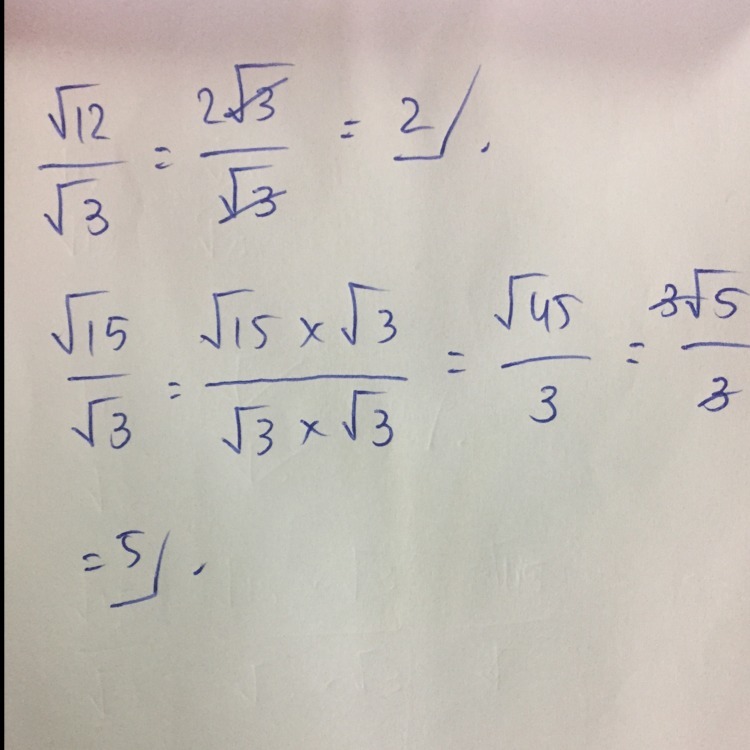 √12/√3 = 2√3/√3 = 2/.
√15/√3 = √15 × √3/√3 × √3 = √45/3 = 3√5/3
= 5/.